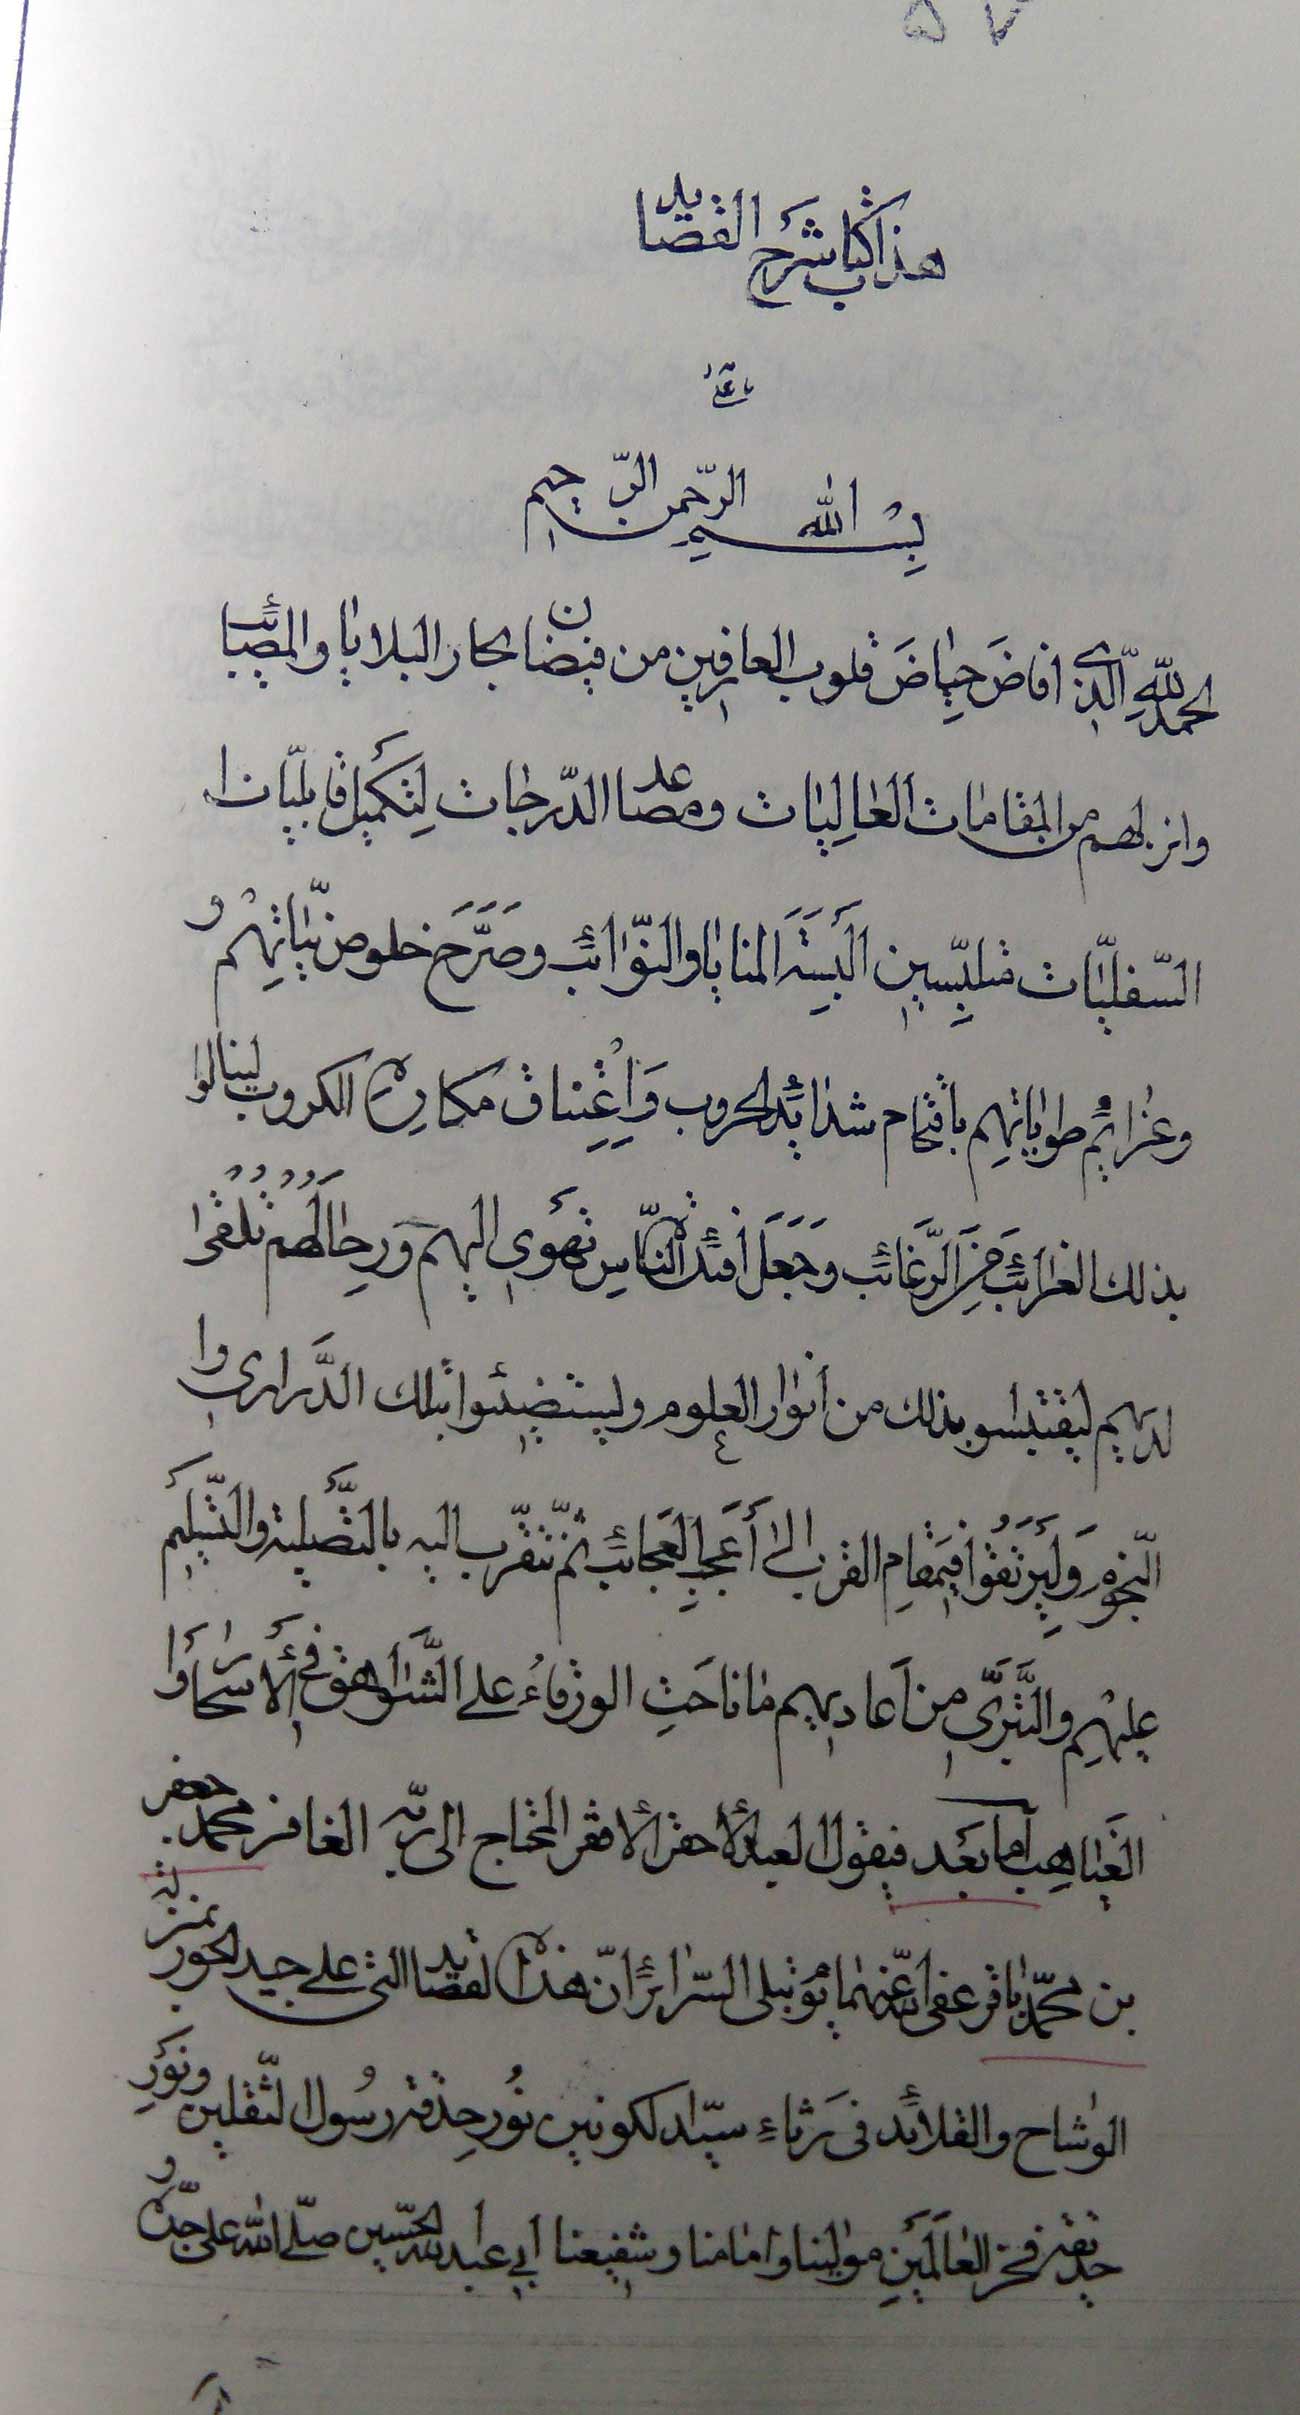 ٥٧
هذا كتاب شرح القصايد
بسم الله الرّحمن الرّحيم
الحمد للّهِ الّذى افاضَ حِياضَ قلوب العارفين من فيضان بحار البلايا والمصائب
وانزلهم من المقامات العٰالِيات ومصاعد الدّرجات لِتكميل قابليات
السّفليّات متلبّسين اَلبِسَةَ المنايا والنّوائب وصَرَّحَ خلوص نيّاتِهِم و
وعزائم طويّاتهِم باقتحام شدائد الحروب وَاِعْتِناق مكاره الكروب لينالوا
بذلك الغرائب من الرَّغائب وجَعَلَ أفئدة النّاسِ تهوى اليهم ورِحالَهُم تُلقى
لديهم ليقتبسو بذلك من أنوار العلوم وليستضيئوا بتلك الدَّرارى وا
النّجوم وَلِيَرتَقُوا فى مقامِ القرب الى أعجبِ العَجائب ثمّ نتقرّب اليه بالتَّصلية والتّسليم
عليهِم والتَّبَرّى من اَعاديهم ما ناحَتِ الورقاءُ على الشَّواهق فى الأسحار وا
الغَياهِب امّا بَعد فيقول العبد الأحقر الأفقر المحتاج الى ربّه الغافر محمد جعفر
بن محمّد باقر عفى الله عنهما يوم تبلى السّرائر انّ هذه القصايد التى على جيد الحور بمنزلة
الوشاح والقلائد فى رَثاءِ سيّد الكونين نُور حِدقة رسُول الثّقلين ونَورِ
حديقة فخر العٰالَمَين مولينا وامامنا وشفيعنا أبي عبد الله الحسين صلّى الله على جدّه و